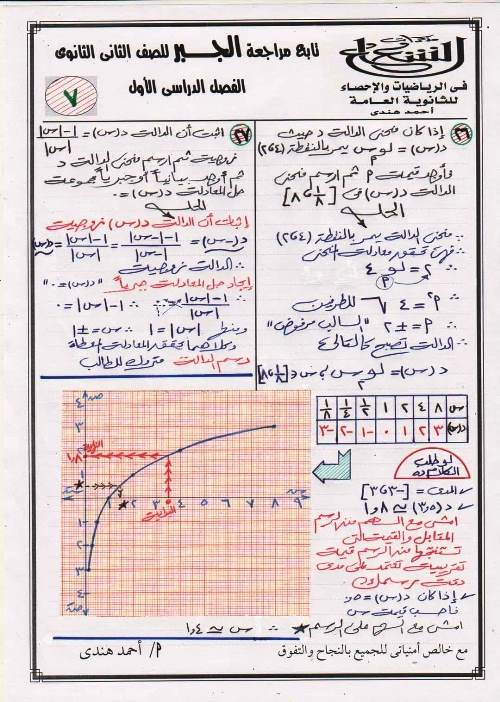 تابع مراجعة الجبر للصف الثانى الثانوى
الفصل الدراسى الأول
٧
فى الرياضيات والإحصاء
للثانوية العامة
أحمد هندى
٣٦ إذا كان منحنى الدالة د حيث
د(س) = لو س يمر بالنقطة (٤، ٢)
فأوجد قيمة م ثم ارسم منحنى
الدالة د(س) فى [١/٨، ٨]
الحل
∵ منحنى الدالة يمر بالنقطة (٤، ٢)
∴ فهى تحقق معادلة المنحنى
∴ ٢ = لو ٤
∴ م² = ٤ √ للطرفين
∴ م = ± ٢ "السالب مرفوض"
∴ الدالة تصبح كالتالى
د(س) = لو س ، س ∈ [١/٨، ٨]
س ٨ ٤ ٢ ١ ١/٢ ١/٤ ١/٨
د(س) ٣ ٢ ١ ٠ -١ -٢ -٣
لو طلب
المدى = [-٣، ٣]
د(٣,٥) ≃ ١,٨
امشى مع السهم من الرسم
المقابل والقيمة التى
تستنتجها من الرسم قيمة
تقريبية تعتمد على مدى
دقة رسمك
إذا كان د(س) = ٠,٥
فاحسب قيمة س
امشى مع السهم على الرسم ★
∴ س ≃ ١,٤
٣٧ اثبت أن الدالة د(س) = |س| - ١ / |س|
زوجية ثم ارسم منحنى الدالة د
ثم أوجد بيانياً أو جبرياً مجموعة
حل المعادلة د(س) = ٠
الحل
إثبات أن الدالة د(س) زوجية
∴ الدالة زوجية
إيجاد حل المعادلة جبرياً "د(س) = ٠"
ومنها |س| = ١ ∴ س = ± ١
وكلاهما يحقق المعادلة المعطاة
رسم الدالة متروك للطالب
مع خالص أمنياتى للجميع بالنجاح والتفوق
م/ أحمد هندى